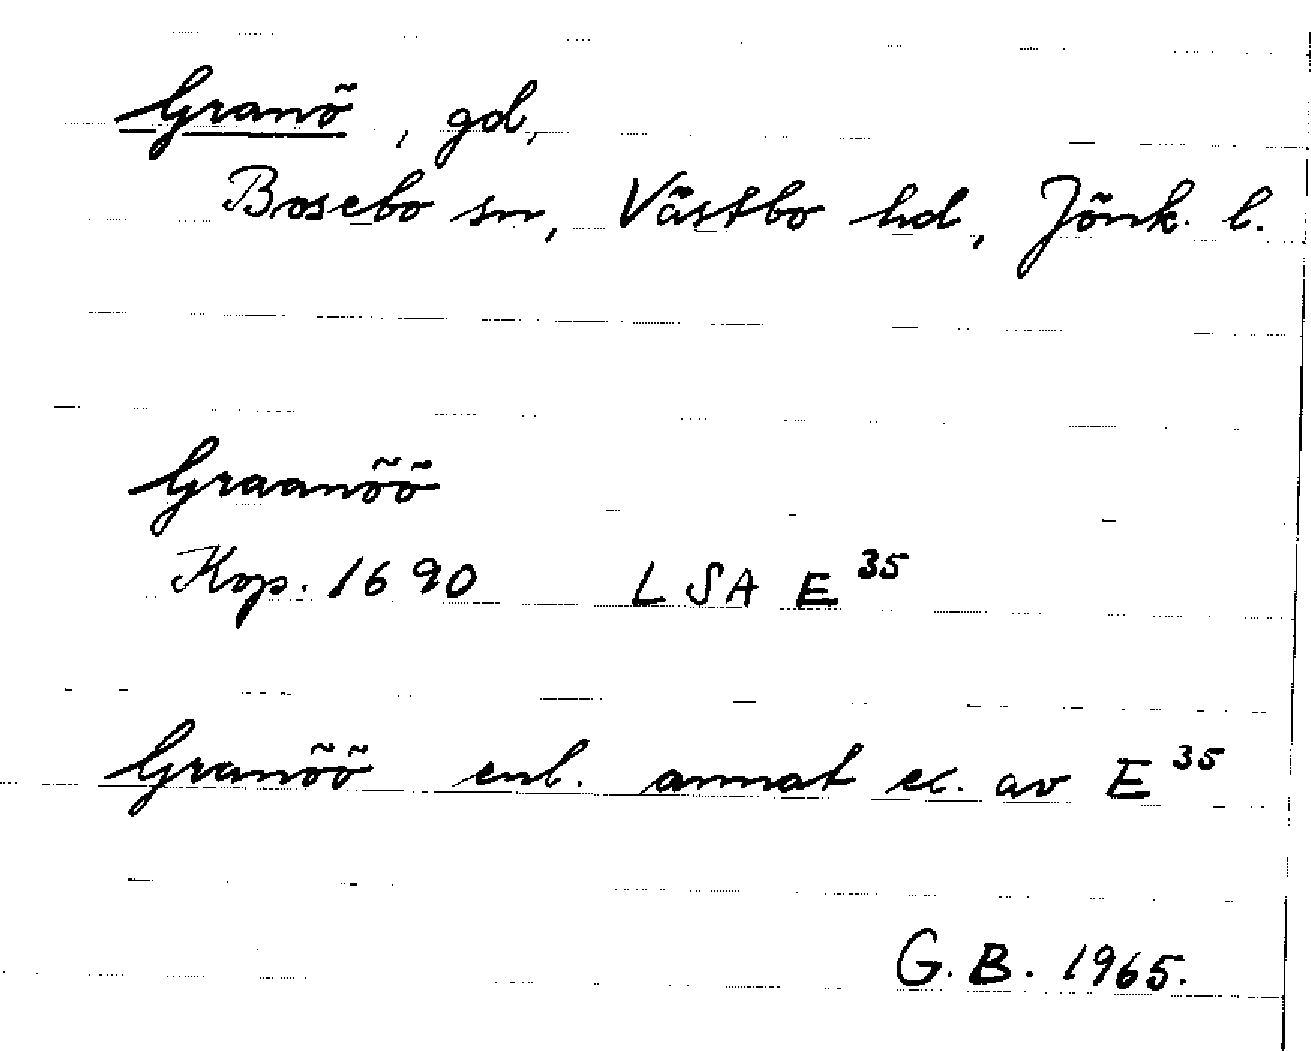 Granö, gd,
Bosebo sn, Västbo hd, Jönk. l.
Graanöö
Kop. 1690 LSA E 35
Granöö enl. annat ex. av E 35
G. B. 1965.